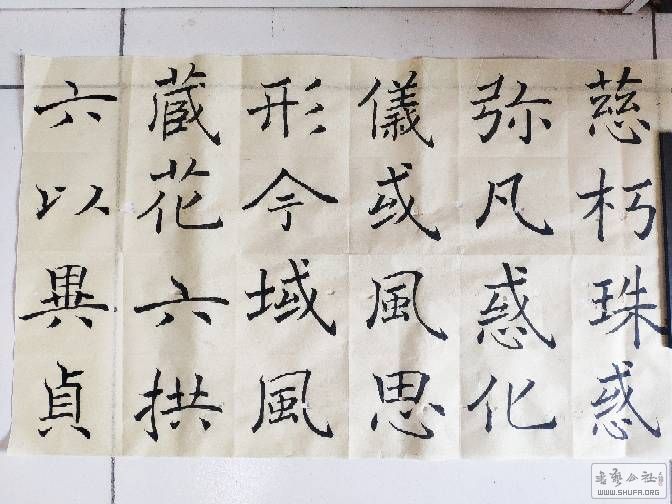 慈朽珠惑
弥凡惑化
儀或風思
形今域風
蔵花六拱
六以異貞
WWW.SHUFA.ORG